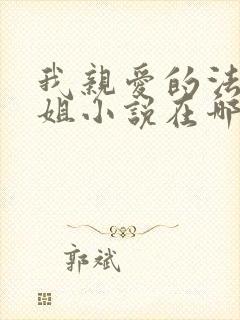 我親愛的法
姐小說在哪
郭斌